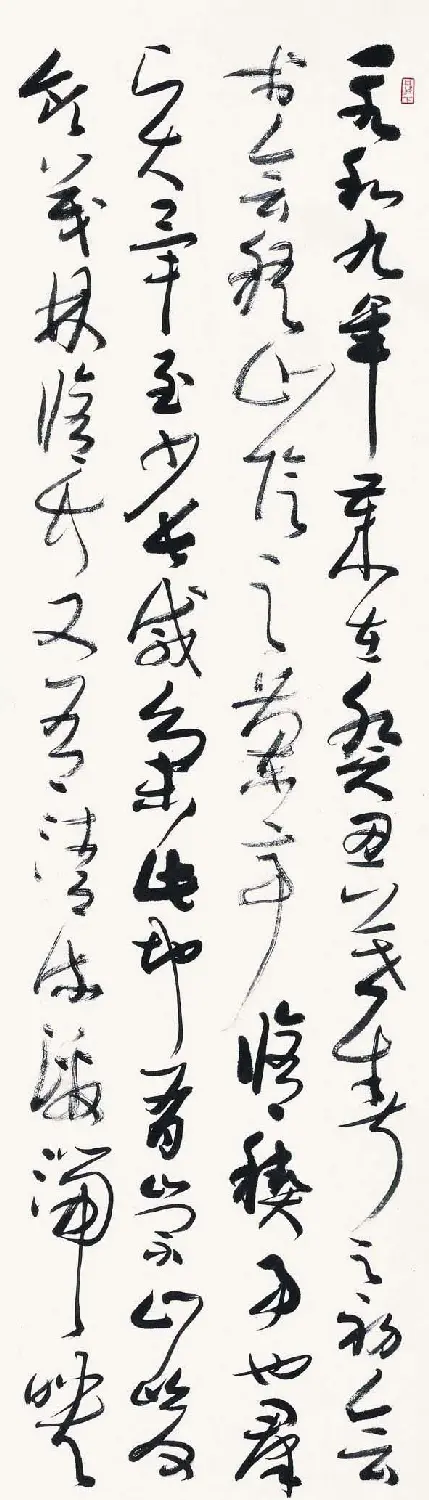 永和九年歲在癸丑暮春之初會
于會稽山陰之蘭亭脩禊事也群
賢畢至少長咸集此地有崇山峻
領茂林脩竹又有清流激湍暎